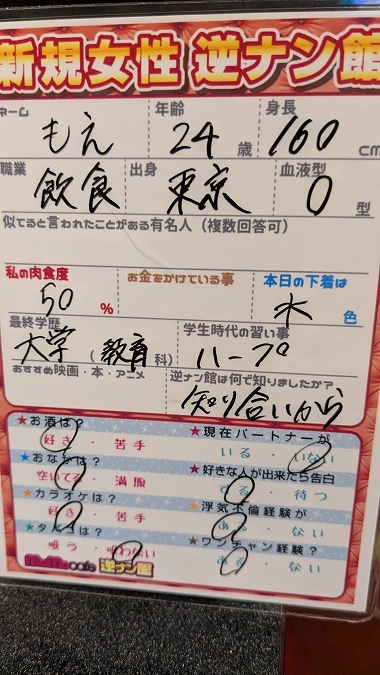 新規女性 逆ナン館
ネーム もえ 年齢 24歳 身長 160cm
職業 飲食 出身 東京 血液型 O型
似てると言われたことがある有名人（複数回答可）
私の肉食度 50% お金をかけている事 本日の下着は 水色
最終学歴 大学（教育科） 学生時代の習い事 ハープ
おすすめ映画・本・アニメ 逆ナン館は何で知りましたか？ 知り合いから
★お酒は？ ★現在パートナーが
好き・苦手 いる・いない
★おなかは？ ★好きな人が出来たら告白
空いてる・満腹 する・待つ
★カラオケは？ ★浮気不倫経験が
好き・苦手 ある・ない
★タバコは？ ★ワンチャン経験？
吸う・吸わない ある・ない
cafe 逆ナン館